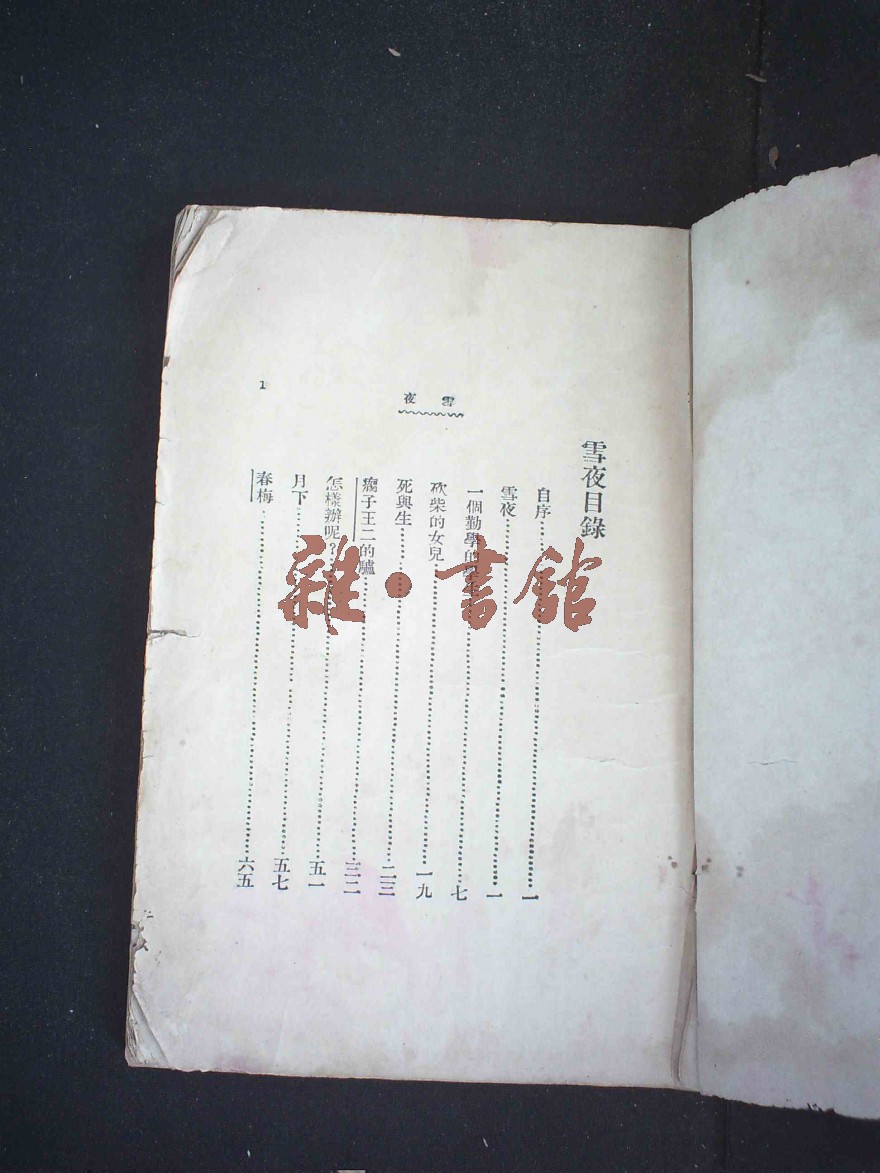 雪夜
1
雪夜目錄
自序……一
雪夜……一
一個勤學的學生……七
砍柴的女兒……一九
死與生……二三
瘸子王二的驢……三二
怎樣辦呢？……五一
月下……五七
春梅……六五
雜·書館